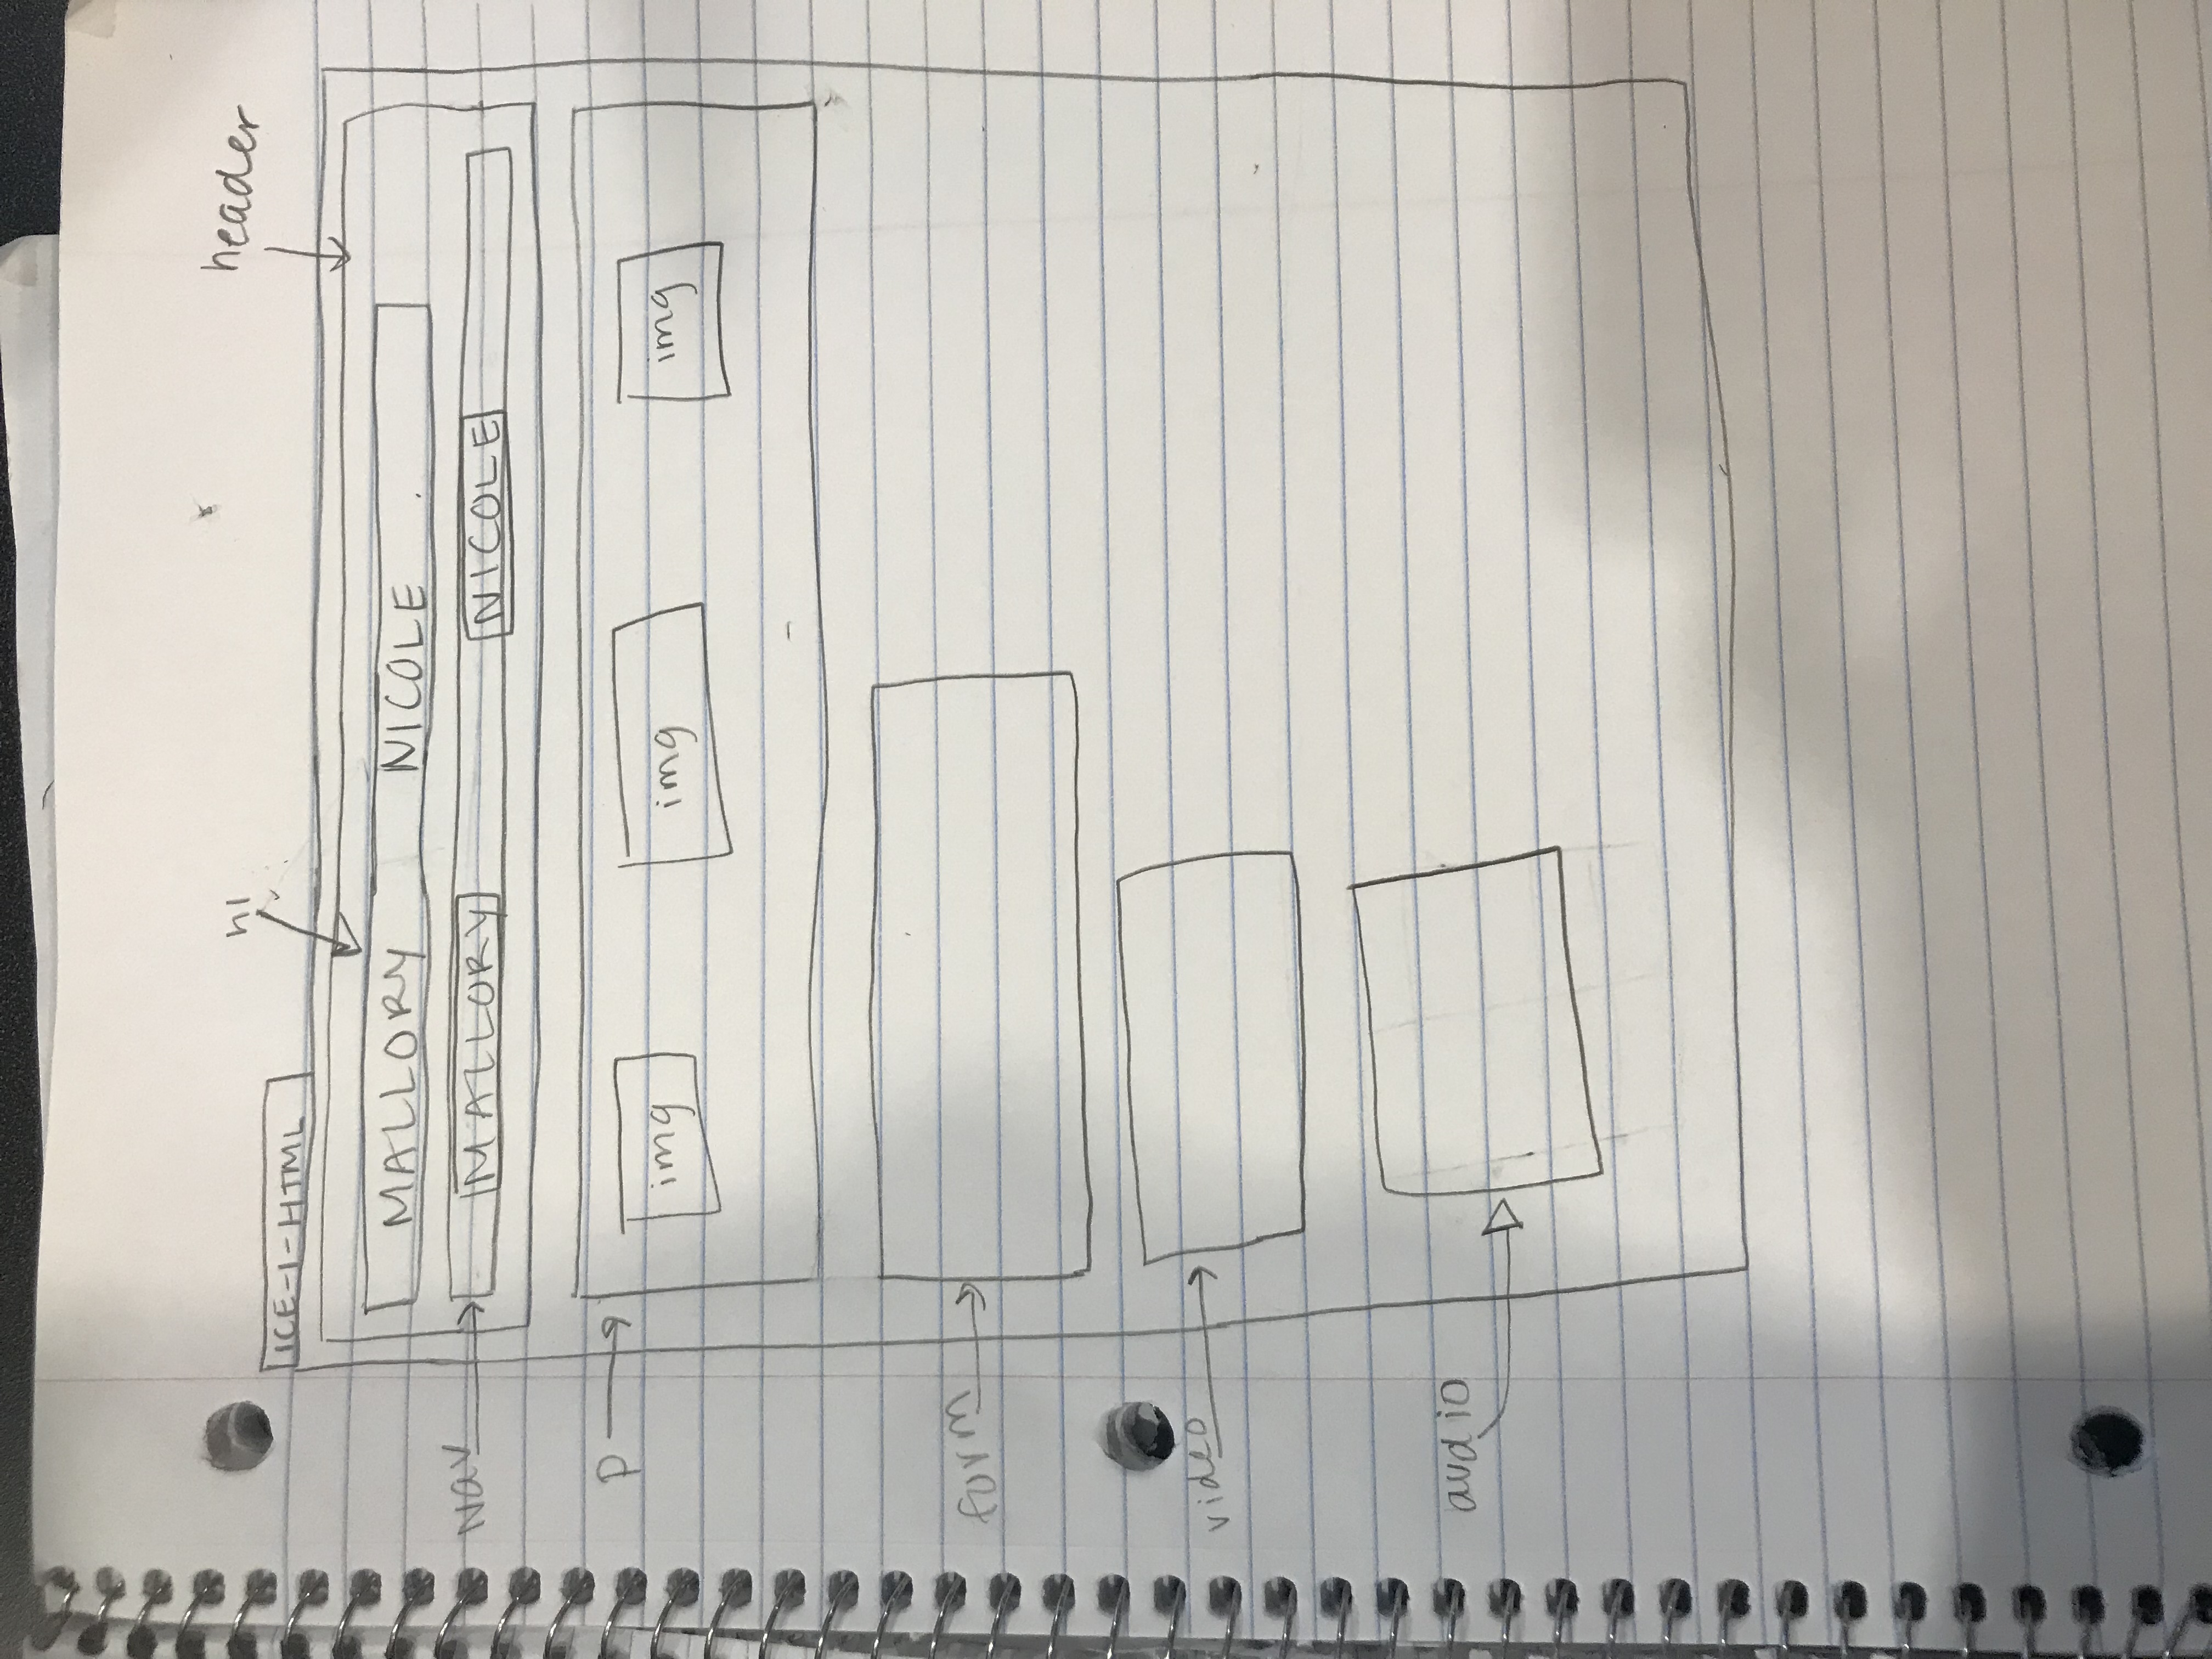 h1
header
ICE-1-HTML
MALLORY NICOLE
Nav
MALLORY NICOLE
p
img img img
form
video
audio